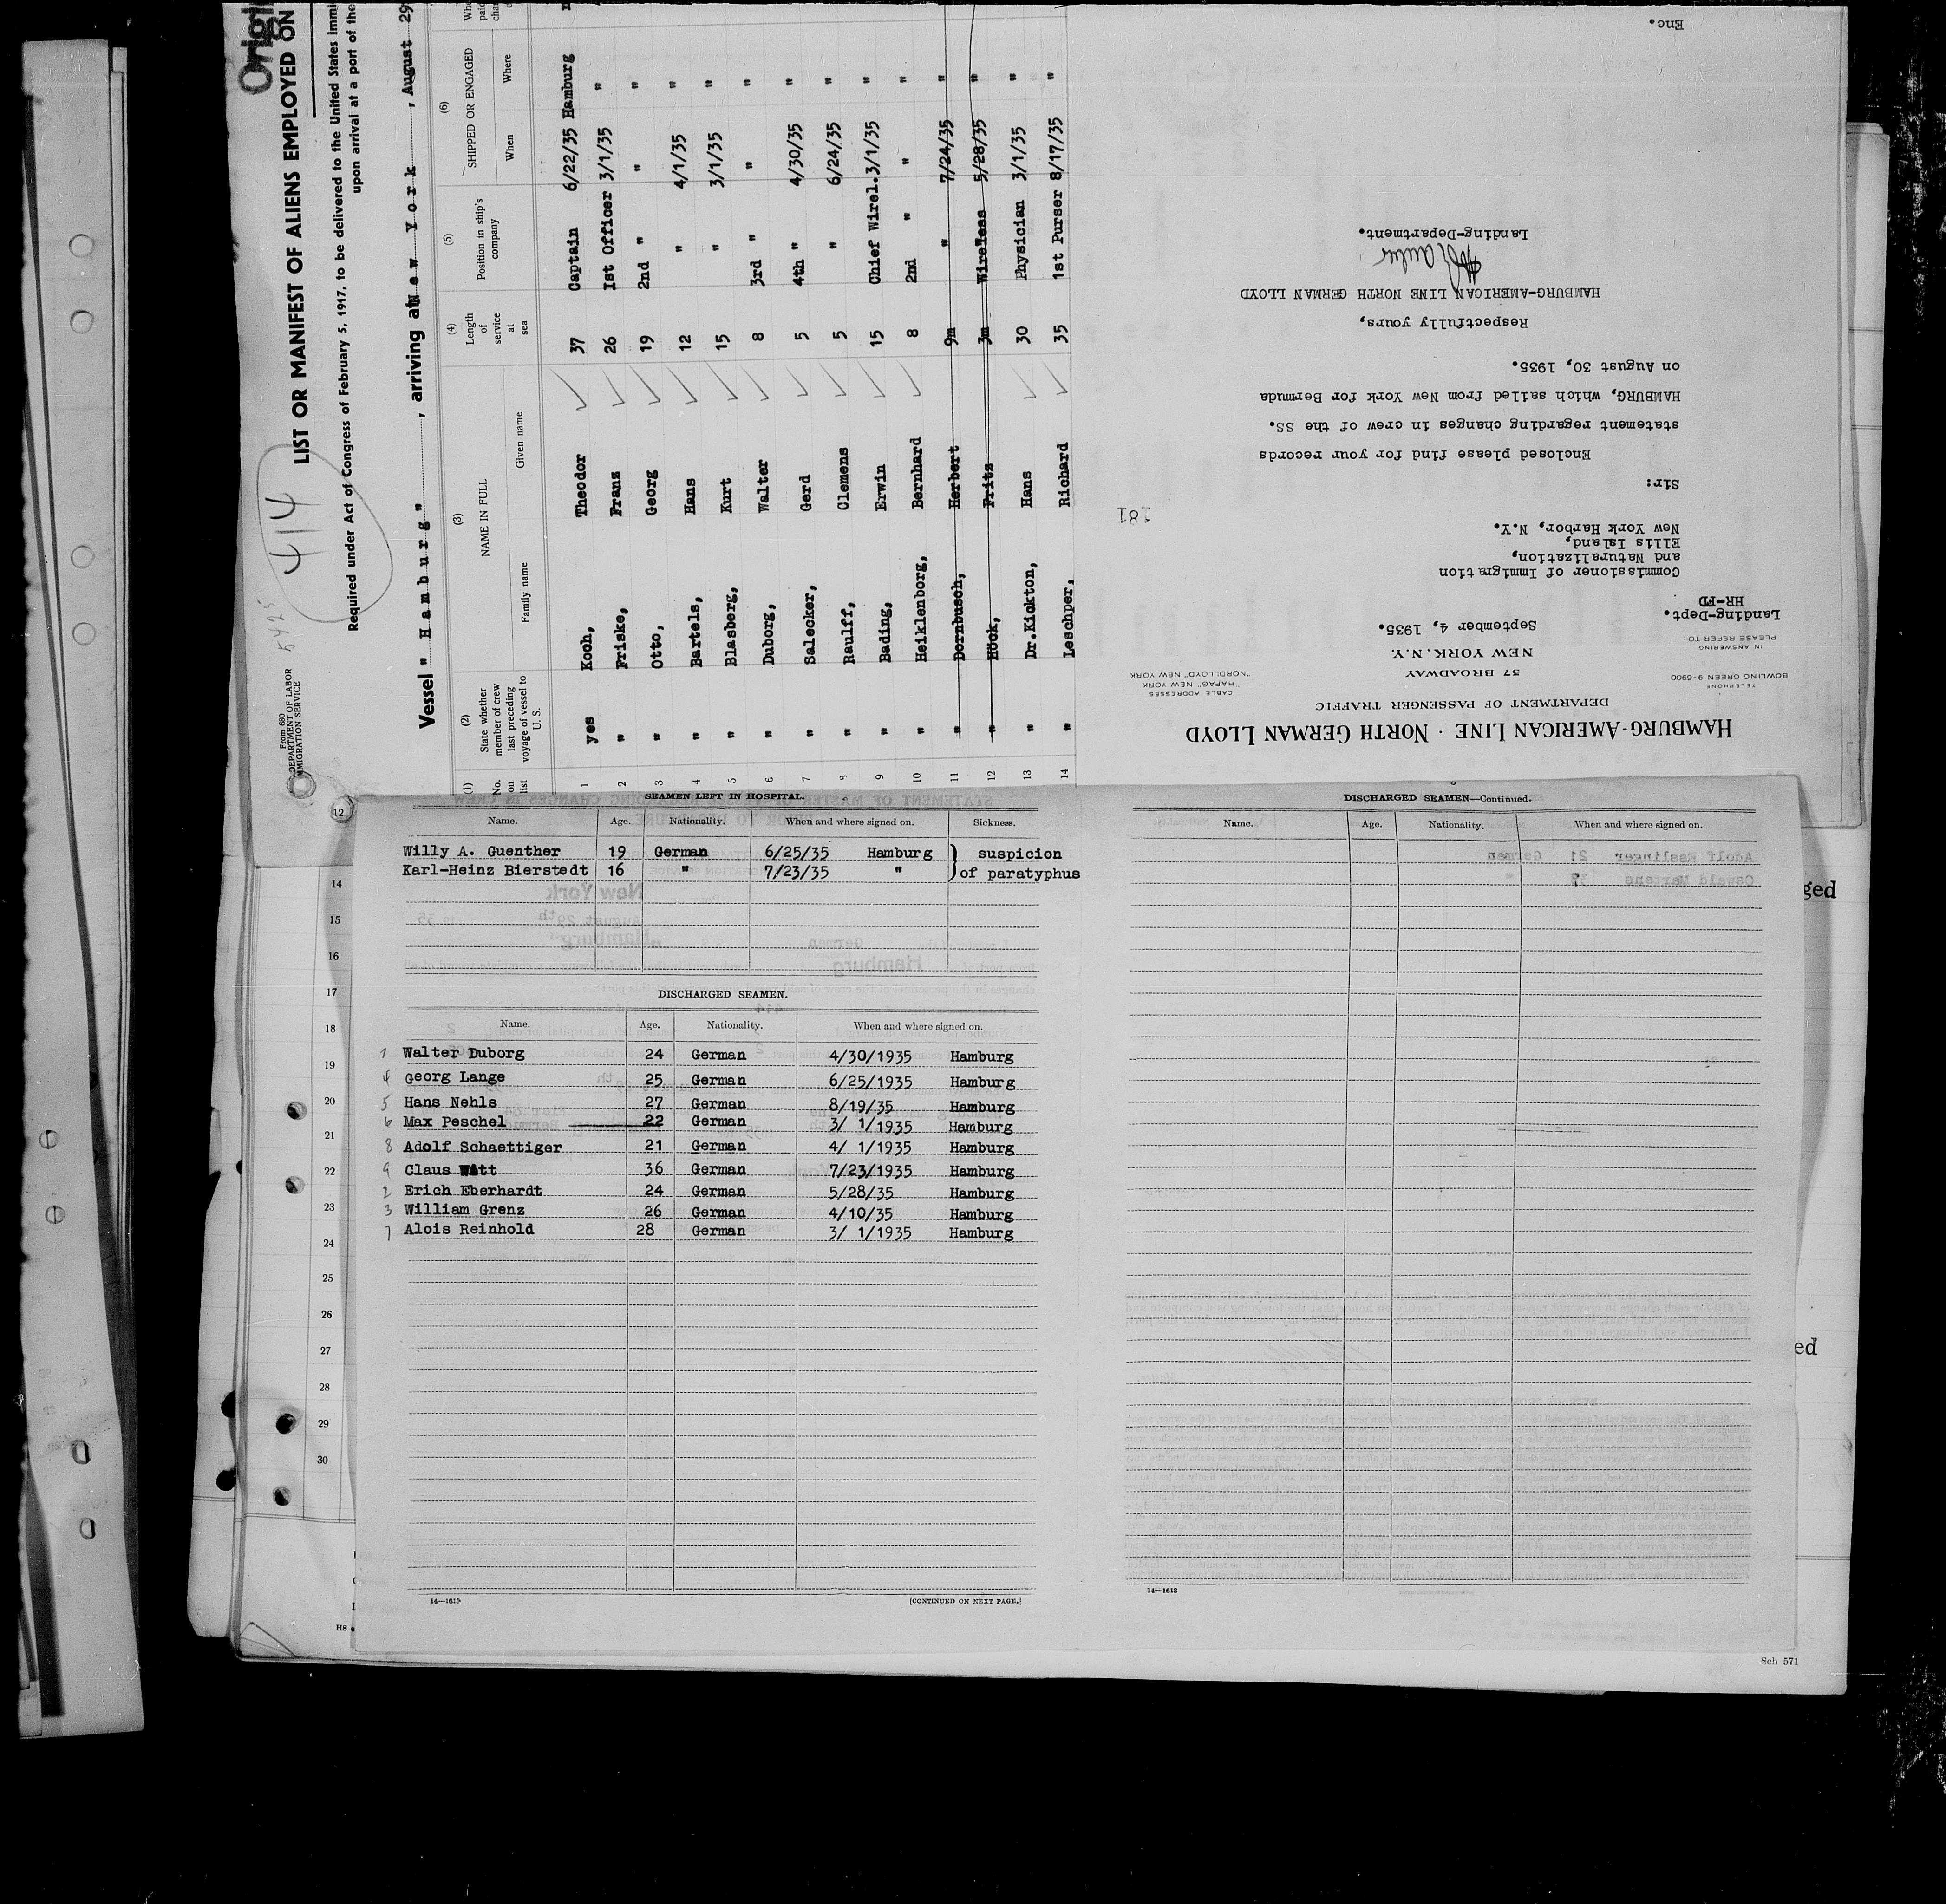 Origi
LIST OR MANIFEST OF ALIENS EMPLOYED ON
Required under Act of Congress of February 5, 1917, to be delivered to the United States immi
upon arrival at a port of the
414
5425
From 680
DEPARTMENT OF LABOR
IMMIGRATION SERVICE
Vessel " Hamburg " , arriving at New York , August 29
(1) (2) (3) (4) (5) (6)
No. on list State whether member of crew last preceding voyage of vessel to U. S. NAME IN FULL Family name Given name Length of service at sea Position in ship's company SHIPPED OR ENGAGED When Where
1 yes Koch, Theodor 37 Captain 6/22/35 Hamburg
2 " Friske, Franz 26 1st Officer 3/1/35 "
3 " Otto, Georg 19 2nd " " "
4 " Bartels, Hans 12 " 4/1/35 "
5 " Blasberg, Kurt 15 " 3/1/35 "
6 " Duborg, Walter 8 3rd " " "
7 " Salecker, Gerd 5 4th " 4/30/35 "
8 " Raulff, Clemens 5 " 6/24/35 "
9 " Bading, Erwin 15 Chief Wirel. 3/1/35 "
10 " Heiklenborg, Bernhard 8 2nd " " "
11 " Dornbusch, Herbert 9m " 7/24/35 "
12 " Höck, Fritz 3m Wireless 5/28/35 "
13 " Dr.Kickton, Hans 30 Physician 3/1/35 "
14 " Leschper, Richard 35 1st Purser 8/17/35 "
HAMBURG-AMERICAN LINE · NORTH GERMAN LLOYD
DEPARTMENT OF PASSENGER TRAFFIC
57 BROADWAY
NEW YORK, N.Y.
TELEPHONE
BOWLING GREEN 9-6900
CABLE ADDRESSES
"HAPAG" NEW YORK
"NORDLLOYD" NEW YORK
IN ANSWERING
PLEASE REFER TO:
Landing-Dept.
HR-FD
September 4, 1935.
Commissioner of Immigration
and Naturalization,
Ellis Island,
New York Harbor, N.Y.
181
Sir:
Enclosed please find for your records
statement regarding changes in crew of the SS.
HAMBURG, which sailed from New York for Bermuda
on August 30, 1935.
Respectfully yours,
HAMBURG-AMERICAN LINE NORTH GERMAN LLOYD
Landing-Department.
Enc.
SEAMEN LEFT IN HOSPITAL.
Name. Age. Nationality. When and where signed on. Sickness.
Willy A. Guenther 19 German 6/25/35 Hamburg ) suspicion
Karl-Heinz Bierstedt 16 " 7/23/35 " ) of paratyphus
DISCHARGED SEAMEN.
Name. Age. Nationality. When and where signed on.
1 Walter Duborg 24 German 4/30/1935 Hamburg
4 Georg Lange 25 German 6/25/1935 Hamburg
5 Hans Nehls 27 German 8/19/35 Hamburg
6 Max Peschel 22 German 3/ 1/1935 Hamburg
8 Adolf Schaettiger 21 German 4/ 1/1935 Hamburg
9 Claus Witt 36 German 7/23/1935 Hamburg
2 Erich Eberhardt 24 German 5/28/35 Hamburg
3 William Grenz 26 German 4/10/35 Hamburg
7 Alois Reinhold 28 German 3/ 1/1935 Hamburg
[CONTINUED ON NEXT PAGE.]
DISCHARGED SEAMEN—Continued.
Name. Age. Nationality. When and where signed on.
14—1613
12
14
15
16
17
18
19
20
21
22
23
24
25
26
27
28
29
30
ged
ed
Sch 571